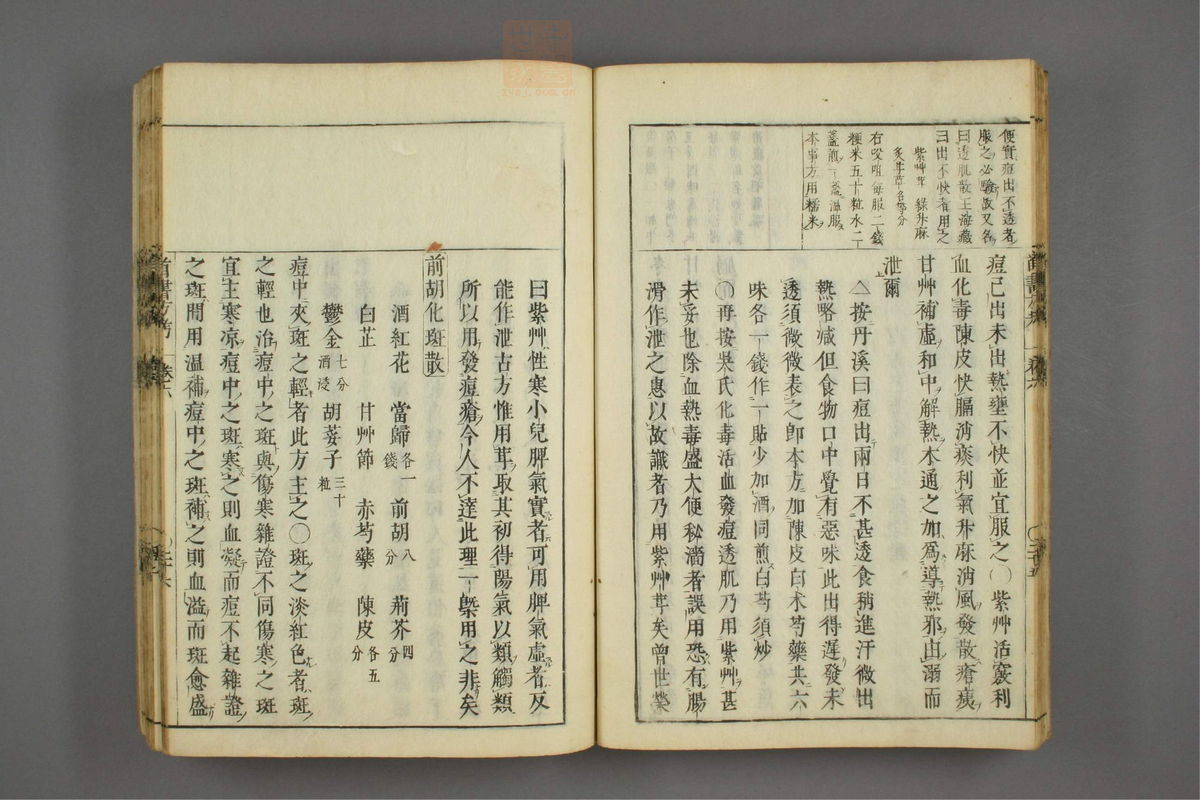 便實痘出不透者
服之必驗故又名
曰透肌散王海藏
曰出不快者用之
紫艸茸 綠升麻
炙甘草各等分
右㕮咀每服二錢
粳米五十粒水二
盞煎一盞溫服
本事方用糯米
痘已出未出熱壅不快並宜服之○紫艸活竅利
血化毒陳皮快膈消痰利氣升麻消風發散瘡痍
甘艸補虛和中解熱木通之加爲導熱邪由溺而
泄爾
△按丹溪曰痘出兩日不甚透食稍進汗微出
熱略减但食物口中覺有惡味此出得遲發未
透須微微表之卽本方加陳皮白术芍藥共六
味各一錢作一貼少加酒同煎白芍須炒
○再按吳氏化毒活血發痘透肌乃用紫艸甚
未妥也除血熱毒盛大便秘濇者誤用恐有腸
滑作泄之患以故識者乃用紫艸茸矣曾世榮
曰紫艸性寒小兒脾氣實者可用脾氣虛者反
能作泄古方惟用茸取其初得陽氣以類觸類
所以用發痘瘡今人不達此理一槩用之非矣
前胡化斑散
酒紅花 當歸各一錢 前胡八分 荊芥四分
白芷 甘艸節 赤芍藥 陳皮各五分
鬱金七分酒浸 胡荽子三十粒
痘中夾斑之輕者此方主之○斑之淡紅色者斑
之輕也治痘中之斑與傷寒雜證不同傷寒之斑
宜主寒凉痘中之斑寒之則血凝而痘不起雜證
之斑間用溫補痘中之斑補之則血溢而斑愈盛